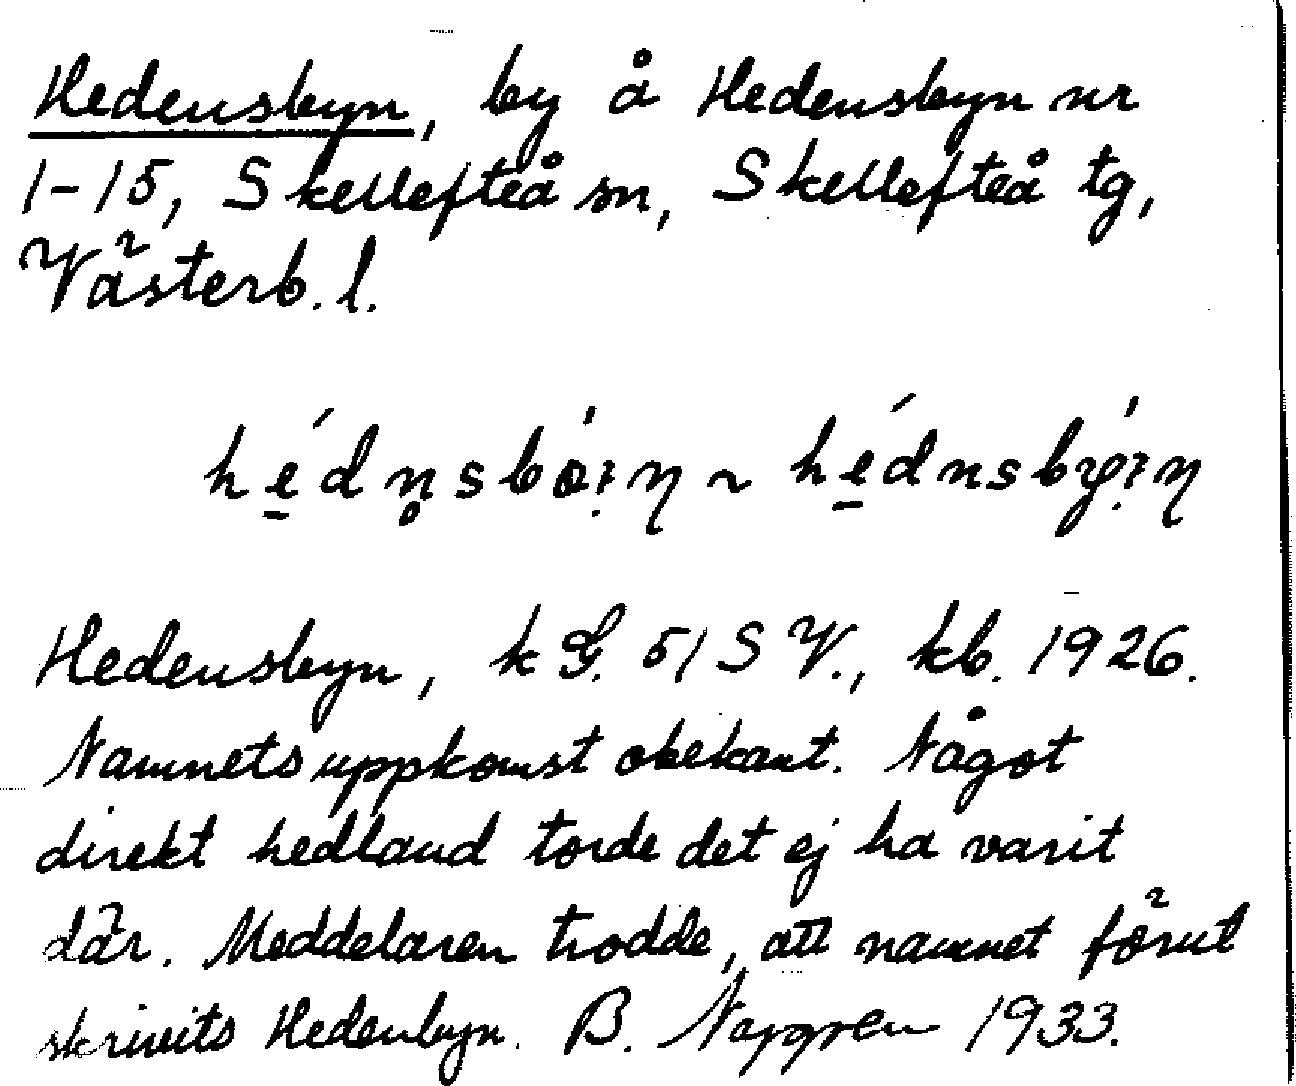 Hedensbyn, by å Hedensbyn nr
1-15, Skellefteå sn, Skellefteå tg,
Västerb. l.
Hedensbyn, k G. 51 S V., kb. 1926.
Namnets uppkomst obekant. Något
direkt hedland torde det ej ha varit
där. Meddelaren trodde, att namnet förut
skrivits Hedenbyn. B. Nygren 1933.